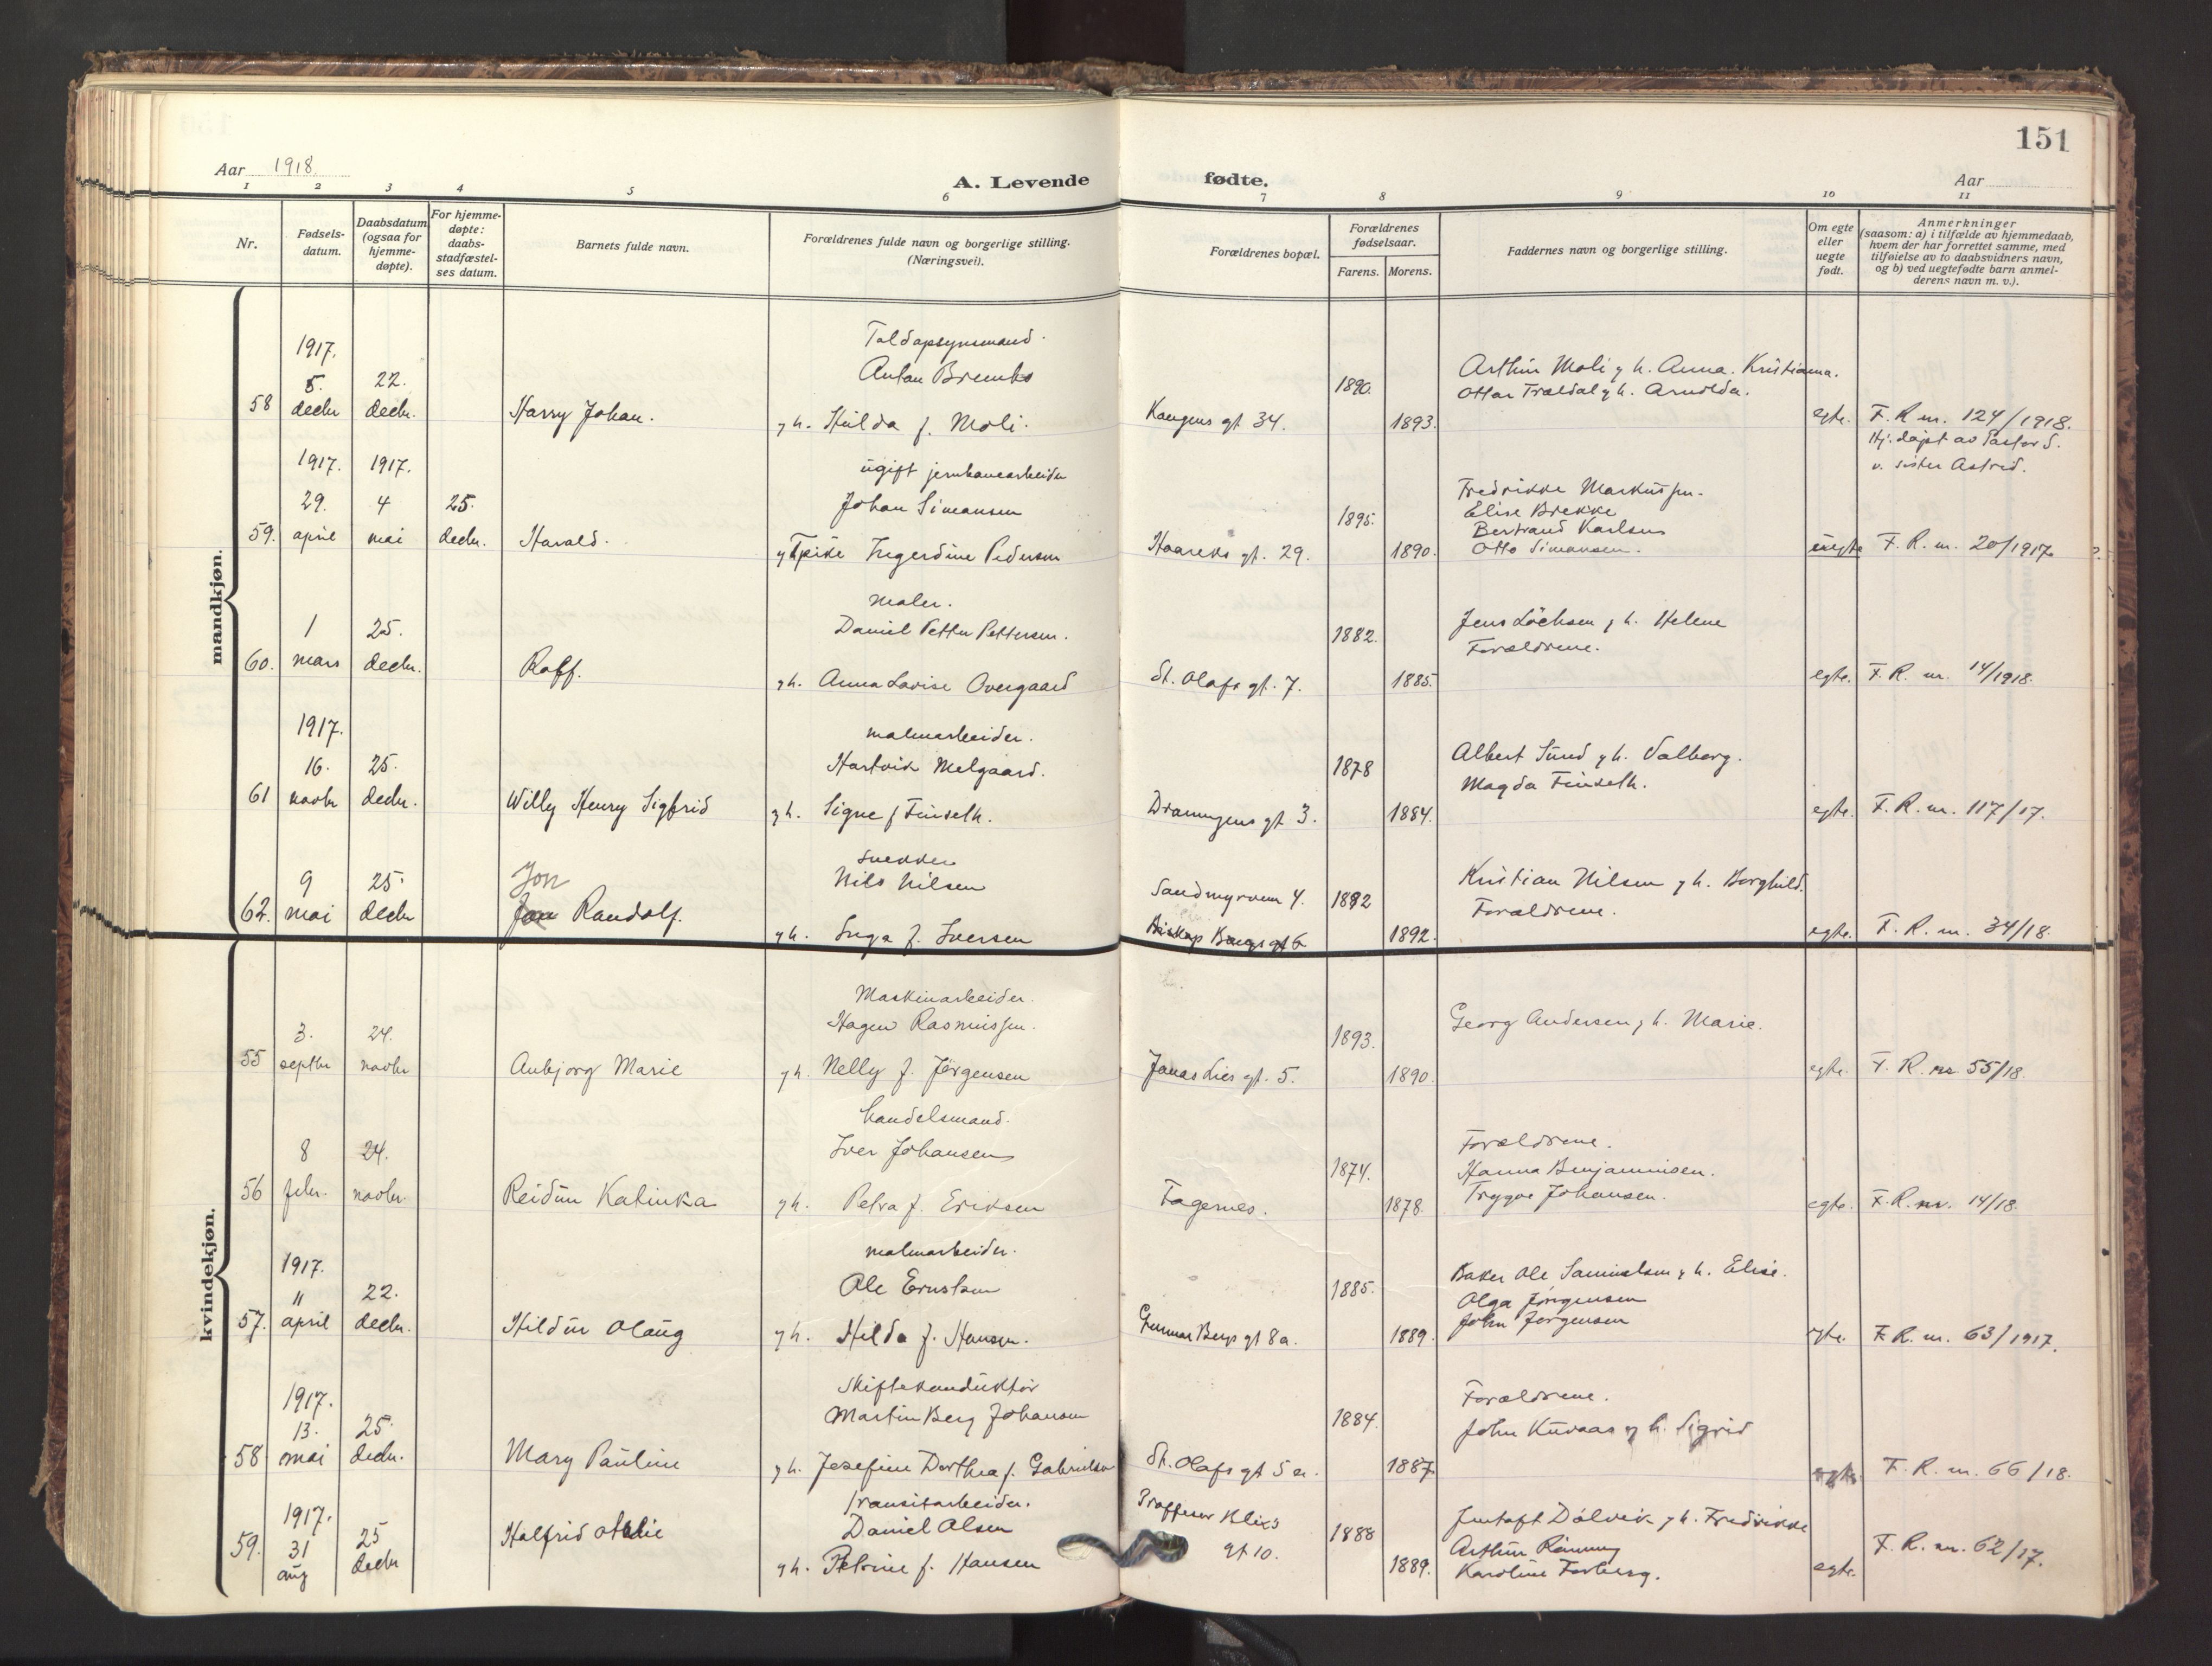 151
Aar 1918.
A. Levende fødte.
Aar
1 2 3 4 5 6 7 8 9 10 11
Nr.
Fødsels-
datum.
Daabsdatum
(ogsaa for
hjemme-
døpte).
For hjemme-
døpte:
daabs-
stadfæstel-
ses datum.
Barnets fulde navn.
Forældrenes fulde navn og borgerlige stilling.
(Næringsvei).
Forældrenes bopæl.
Forældrenes
fødselsaar.
Farens. Morens.
Faddernes navn og borgerlige stilling.
Om egte
eller
uegte
født.
Anmerkninger
(saasom: a) i tilfælde av hjemmedaab,
hvem der har forrettet samme, med
tilføielse av to daabsvidners navn,
og b) ved uegtefødte barn anmel-
derens navn m. v.).
mandkjøn.
58
1917.
5.
decbr
22.
decbr.
Harry Johan.
Toldopsynsmand.
Anton
g h. Hilda f. Moli.
Kongens gt 34.
1890.
1893.
Arthur Moli g h. Anna. Kristianna.
Ottar Fraldal g h. Arnolda.
egte.
F. R. nr. 124/1918.
Hj. døpt av Pastor S.
v. sister Astrid.
59.
1917.
29.
april
1917.
4
mai
25.
decbr.
Harald.
ugift jernbanearbeider
Johan Simonsen
g pike Ingerdine Pedersen
Haareks gt. 29.
1895.
1890.
Fredrikke Markussen.
Elise Brekke
Bertrand Karlsen
Otto Simonsen.
uegte
F. R. nr. 20/1917.
60.
1
mars
25.
decbr.
Rolf.
maler.
Daniel Petter Pettersen.
g h. Anna Lovise Overgaard
St. Olafs gt. 7.
1882.
1885.
Jens Løchsen g h. Helene
Forældrene.
egte.
F. R. nr. 14/1918.
61
1917.
16.
novbr
25.
decbr.
Willy Henry Sigfrid
malmarbeider.
Hartvik Melgaard.
g h. Signe f Finseth.
Dronningens gt 3.
1878
1884.
Albert Sund g h. Valborg.
Magda Finseth.
egte.
F. R. nr. 117/17.
62.
9
mai
25.
decbr
Jon
Jon Randolf.
snekker
Nils Nilsen
g h. Inga f. Iversen
Sandmyrveien 4.
Biskop Bangs gt 6
1892
1892.
Kristian Nilsen g h. Borghild.
Forældrene.
egte.
F. R. nr. 34/18.
kvindekjøn.
55
3.
septbr
24.
novbr
Aubjorg Marie
Maskinarbeider.
Hagen Rasmussen.
g h. Nelly f. Jørgensen
Jonas Lies gt. 5.
1893.
1890.
Georg Andersen g h. Marie.
egte.
F. R. nr 55/18.
56
8
febr.
24.
novbr.
Reidun Katinka
handelsmand.
Iver Johansen
g h. Petra f. Eriksen
Fagernes.
1874.
1878.
Forældrene.
Hanna Benjaminsen.
Trygve Johansen.
egte.
F. R. nr. 14/18.
57.
1917.
11
april
22.
decbr.
Hildur Olaug
malmarbeider.
Ole Ernstsen
g h. Hilda f. Hansen.
Gunnar Bergs gt 8a.
1885.
1889.
Baker Ole Samuelsen g h. Elise.
Olga Jørgensen
John Jørgensen
egte.
F. R. nr. 63/1917.
58
1917.
13.
mai
25.
decbr.
Mary Pauline
Skiftekonduktør
Martin Berg Johansen
g h. Josefine Dorthea f. Gabrielsen
St. Olafs gt 5 a.
1884.
1887.
Forældrene.
John Kuvaas g h. Sigrid
egte.
F. R. nr. 66/18.
59.
1917.
31
aug
25
decbr
Halfrid Otelie
Transitarbeider.
Daniel Olsen
g h. Petrine f. Hansen
Proffesor Klixs
gt 10.
1888
1889.
Dølvik g h. Fredrikke
Arthur Rønning
Karoline Forberg.
egte.
F. R. nr. 62/17.